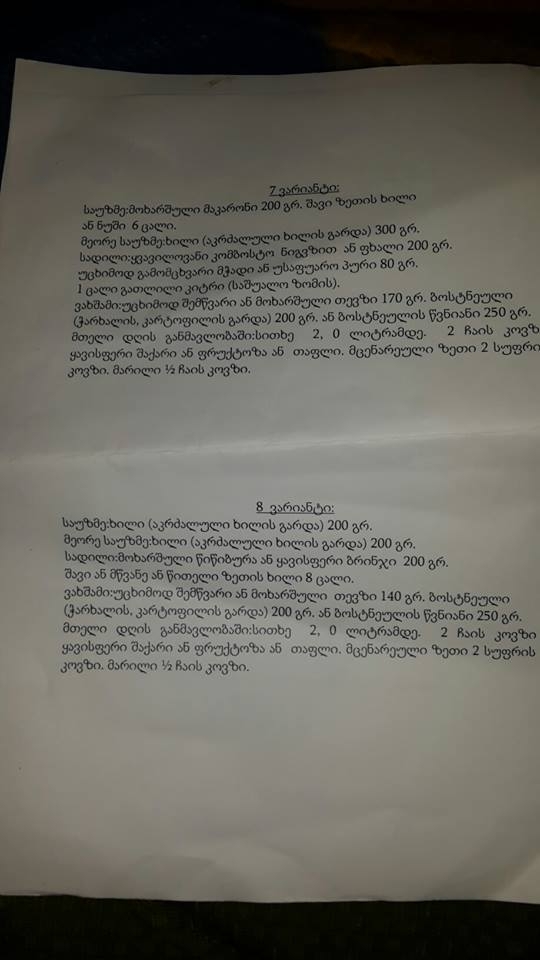 7 ვარიანტი:
საუზმე:მოხარშული მაკარონი 200 გრ. შავი ზეთის ხილი
ან ნუში 6 ცალი.
მეორე საუზმე:ხილი (აკრძალული ხილის გარდა) 300 გრ.
სადილი:ყვავილოვანი კომბოსტო ნიგვზით ან ფხალი 200 გრ.
უცხიმოდ გამომცხვარი მჭადი ან უსაფუარო პური 80 გრ.
1 ცალი გათლილი კიტრი (საშუალო ზომის).
ვახშამი:უცხიმოდ შემწვარი ან მოხარშული თევზი 170 გრ. ბოსტნეული
(ჭარხალის, კარტოფილის გარდა) 200 გრ. ან ბოსტნეულის წვნიანი 250 გრ.
მთელი დღის განმავლობაში:სითხე 2, 0 ლიტრამდე. 2 ჩაის კოვზ
ყავისფერი შაქარი ან ფრუქტოზა ან თაფლი. მცენარეული ზეთი 2 სუფრი
კოვზი. მარილი ½ ჩაის კოვზი.
8 ვარიანტი:
საუზმე:ხილი (აკრძალული ხილის გარდა) 200 გრ.
მეორე საუზმე:ხილი (აკრძალული ხილის გარდა) 200 გრ.
სადილი:მოხარშული წიწიბურა ან ყავისფერი ბრინჯი 200 გრ.
შავი ან მწვანე ან წითელი ზეთის ხილი 8 ცალი.
ვახშამი:უცხიმოდ შემწვარი ან მოხარშული თევზი 140 გრ. ბოსტნეული
(ჭარხალის, კარტოფილის გარდა) 200 გრ. ან ბოსტნეულის წვნიანი 250 გრ.
მთელი დღის განმავლობაში:სითხე 2, 0 ლიტრამდე. 2 ჩაის კოვზი
ყავისფერი შაქარი ან ფრუქტოზა ან თაფლი. მცენარეული ზეთი 2 სუფრის
კოვზი. მარილი ½ ჩაის კოვზი.